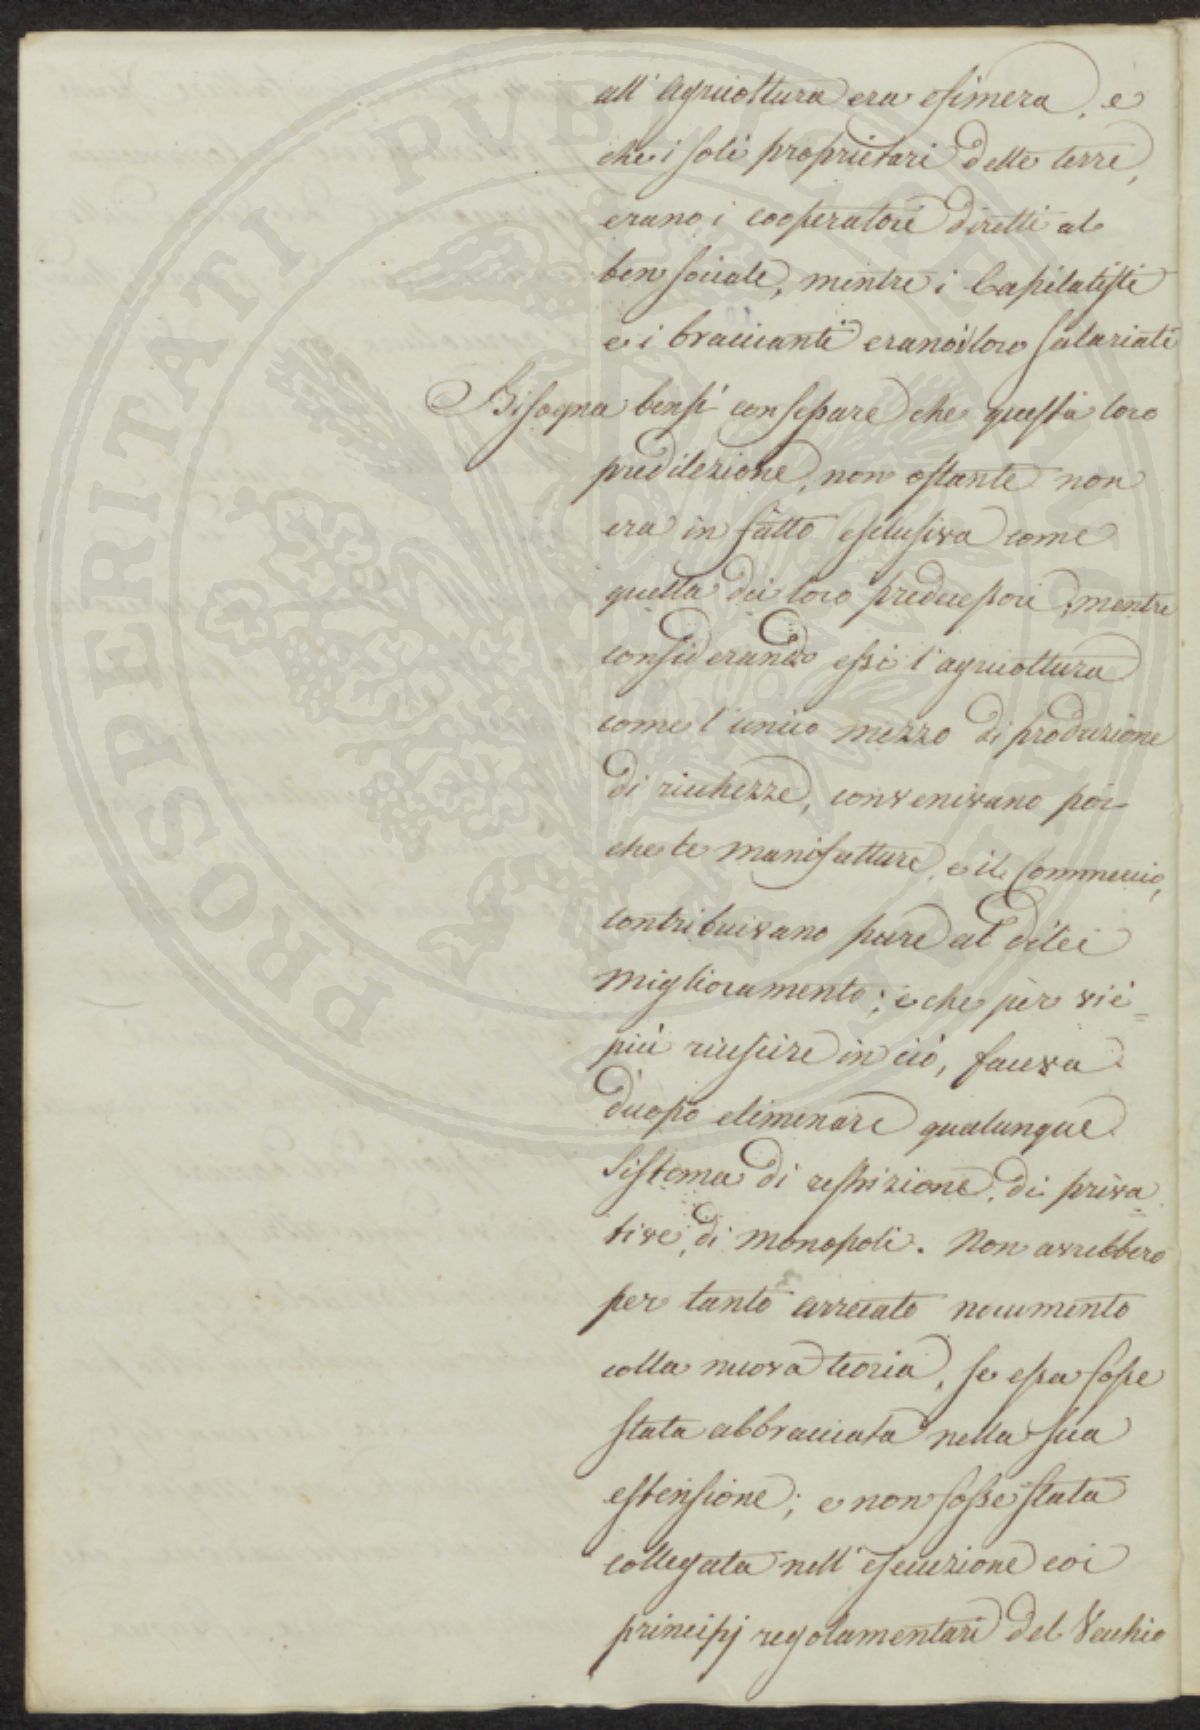 all'agricoltura era efimera, e
che i soli proprietari delle terre,
erano i cooperatori diretti al
ben sociale, mentre i Capitalisti
e i braccianti erano i loro salariati
Bisogna bensì confessare che questa loro
predilezione, non ostante non
era in fatto esclusiva come
quella dei loro predecessori, mentre
considerando essi l'agricoltura
come l'unico mezzo di produzione
di ricchezze, convenivano poi
che le manifatture, e il Commercio,
contribuivano pure al dilei
miglioramento; e che per vie=
più riuscire in ciò, faceva
duopo eliminare qualunque
sistema di restrizione, di priva=
tive, di monopoli. Non avrebbero
per tanto arrecato nocumento
colla nuova teoria, se essa fosse
stata abbracciata nella sua
estensione; e non fosse stata
collegata nell'esecuzione coi
principj regolamentari del Vecchio
PROSPERITATI PVBLICAE